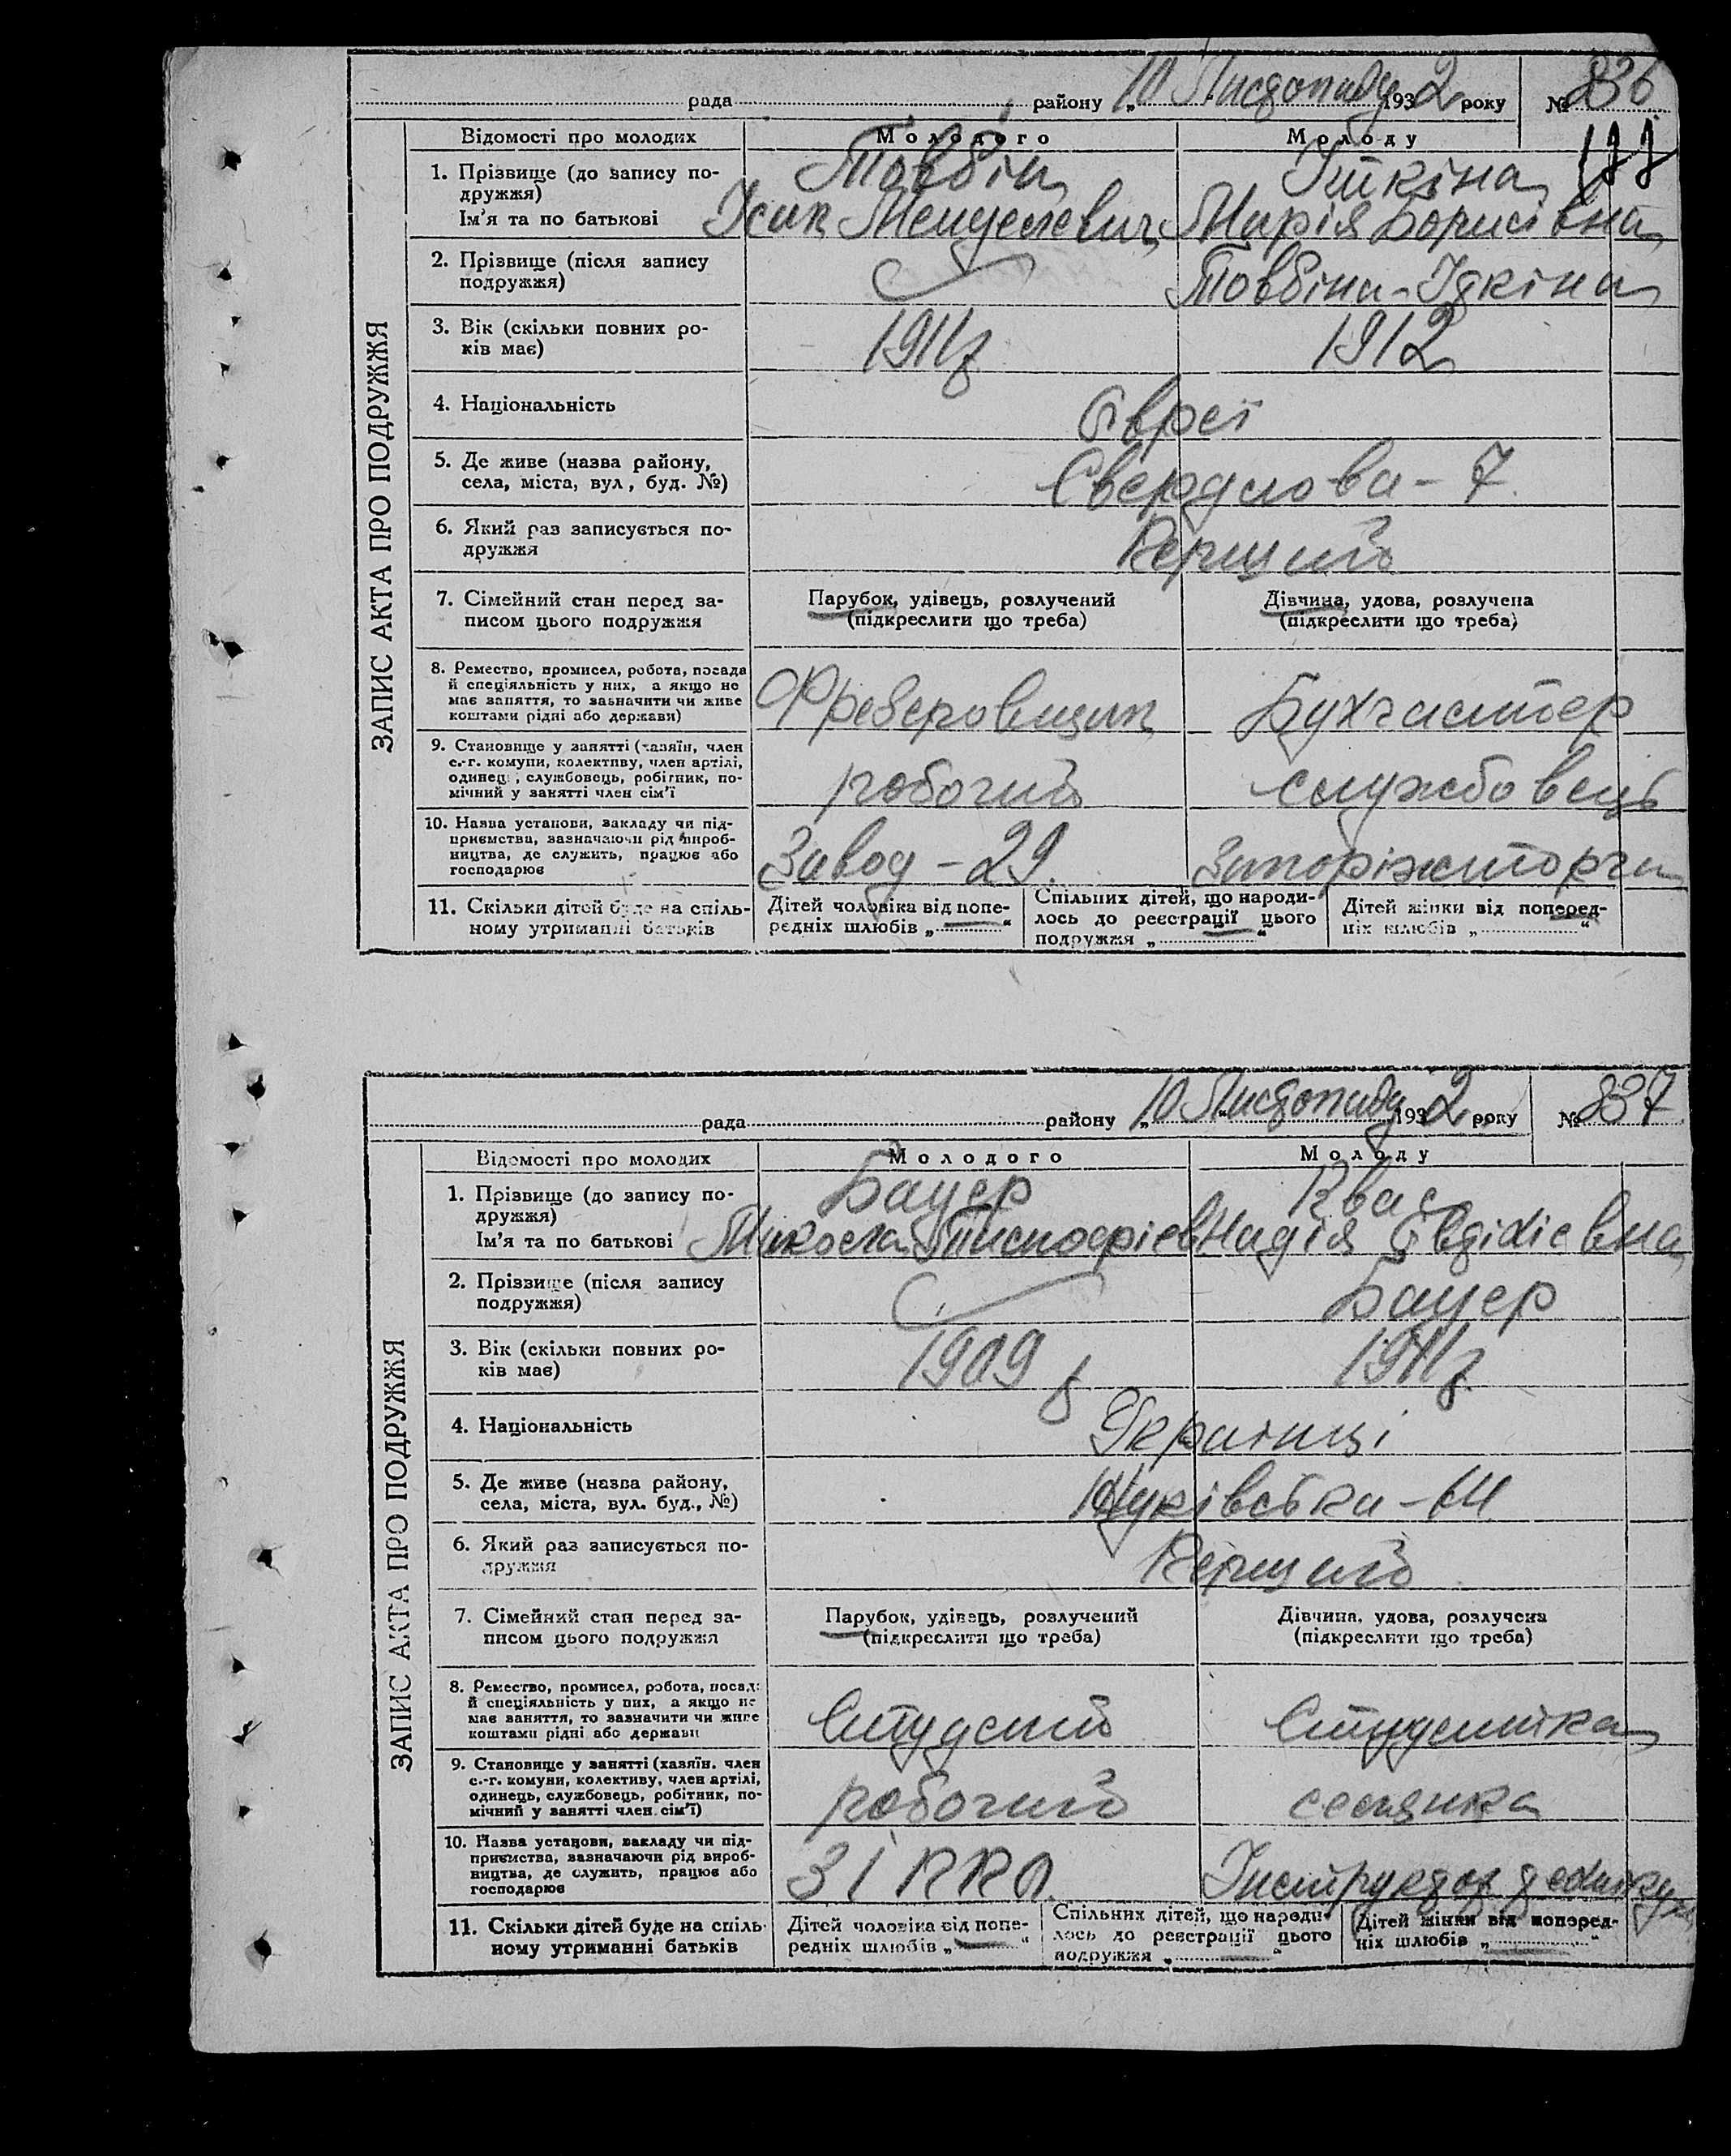 рада районy „10 Листопаду 1932 року № 836
188
Відомості про молодих Молодого Молоду
1. Прізвище (до запису по-
дружжя)
Товбін Іткіна
Ім'я та по батькові Ісак Менделевич Марія Борисівна
2. Прізвище (після запису
подружжя)
Товбіна-Ідкіна
3. Вік (скільки повних ро-
ків має)
1911 р 1912
4. Національність Євреї
5. Де живе (назва району,
села, міста, вул, буд. №)
Свердлова - 7.
6. Який раз записується по-
дружжя
Перший
7. Сімейний стан перед за-
писом цього подружжя
Парубок, удівець, розлучений
(підкреслити що треба)
Дівчина, удова, розлучена
(підкреслити що треба)
8. Ремество, промисел, робота, посада
й спеціяльність у них, а якщо не
має заняття, то зазначити чи живе
коштами рідні або держави)
Фрезеровщик Бухгалтер
9. Становище у занятті (хазяїн, член
с.-г. комуни, колективу, член артілі,
одинець, службовець, робітник, по-
мічний у занятті член сім'ї
робочий службовець
10. Назва установи, закладу чи під-
приємства, зазначаючи рід вироб-
ництва, де служить, працює або
господарює
Завод - 29. Запоріжторг
11. Скільки дітей буде на спіль-
ному утриманні батьків
Дітей чоловіка від попе-
редніх шлюбів „ “
Спільних дітей, що народи-
лось до реєстрації цього
подружжя „ “
Дітей жінки від поперед-
ніх шлюбів „ “
ЗАПИС АКТА ПРО ПОДРУЖЖЯ
рада району „10 Листопаду 1932 року № 837
Відомості про молодих Молодого Молоду
1. Прізвище (до запису по-
дружжя)
Бауер Квас
Ім'я та по батькові Микола Надія
2. Прізвище (після запису
подружжя)
Бауер
3. Вік (скільки повних ро-
ків має)
1909 р 1911 р
4. Національність Українці
5. Де живе (назва району,
села, міста, вул. буд., №)
6. Який раз записується по-
дружжя
Перший
7. Сімейний стан перед за-
писом цього подружжя
Парубок, удівець, розлучений
(підкреслити що треба)
Дівчина, удова, розлучена
(підкреслити що треба)
8. Ремество, промисел, робота, посад
й спеціяльність у них, а якщо не
має заняття, то зазначити чи живе
коштами рідні або держави
Студент Студентка
9. Становище у занятті (хазяїн. член
с.-г. комуни, колективу, член артілі,
одинець, службовець, робітник, по-
мічний у занятті член сім'ї)
робочий селянка
10. Назва установи, закладу чи під-
приємства, зазначаючи рід вироб-
ництва, де служить, працює або
господарює
11. Скільки дітей буде на спіль-
ному утриманні батьків
Дітей чоловіка від попе-
редніх шлюбів „ “
Спільних дітей, що народи-
лось до реєстрації цього
подружжя „ “
Дітей жінки від поперед-
ніх шлюбів „ “
ЗАПИС АКТА ПРО ПОДРУЖЖЯ